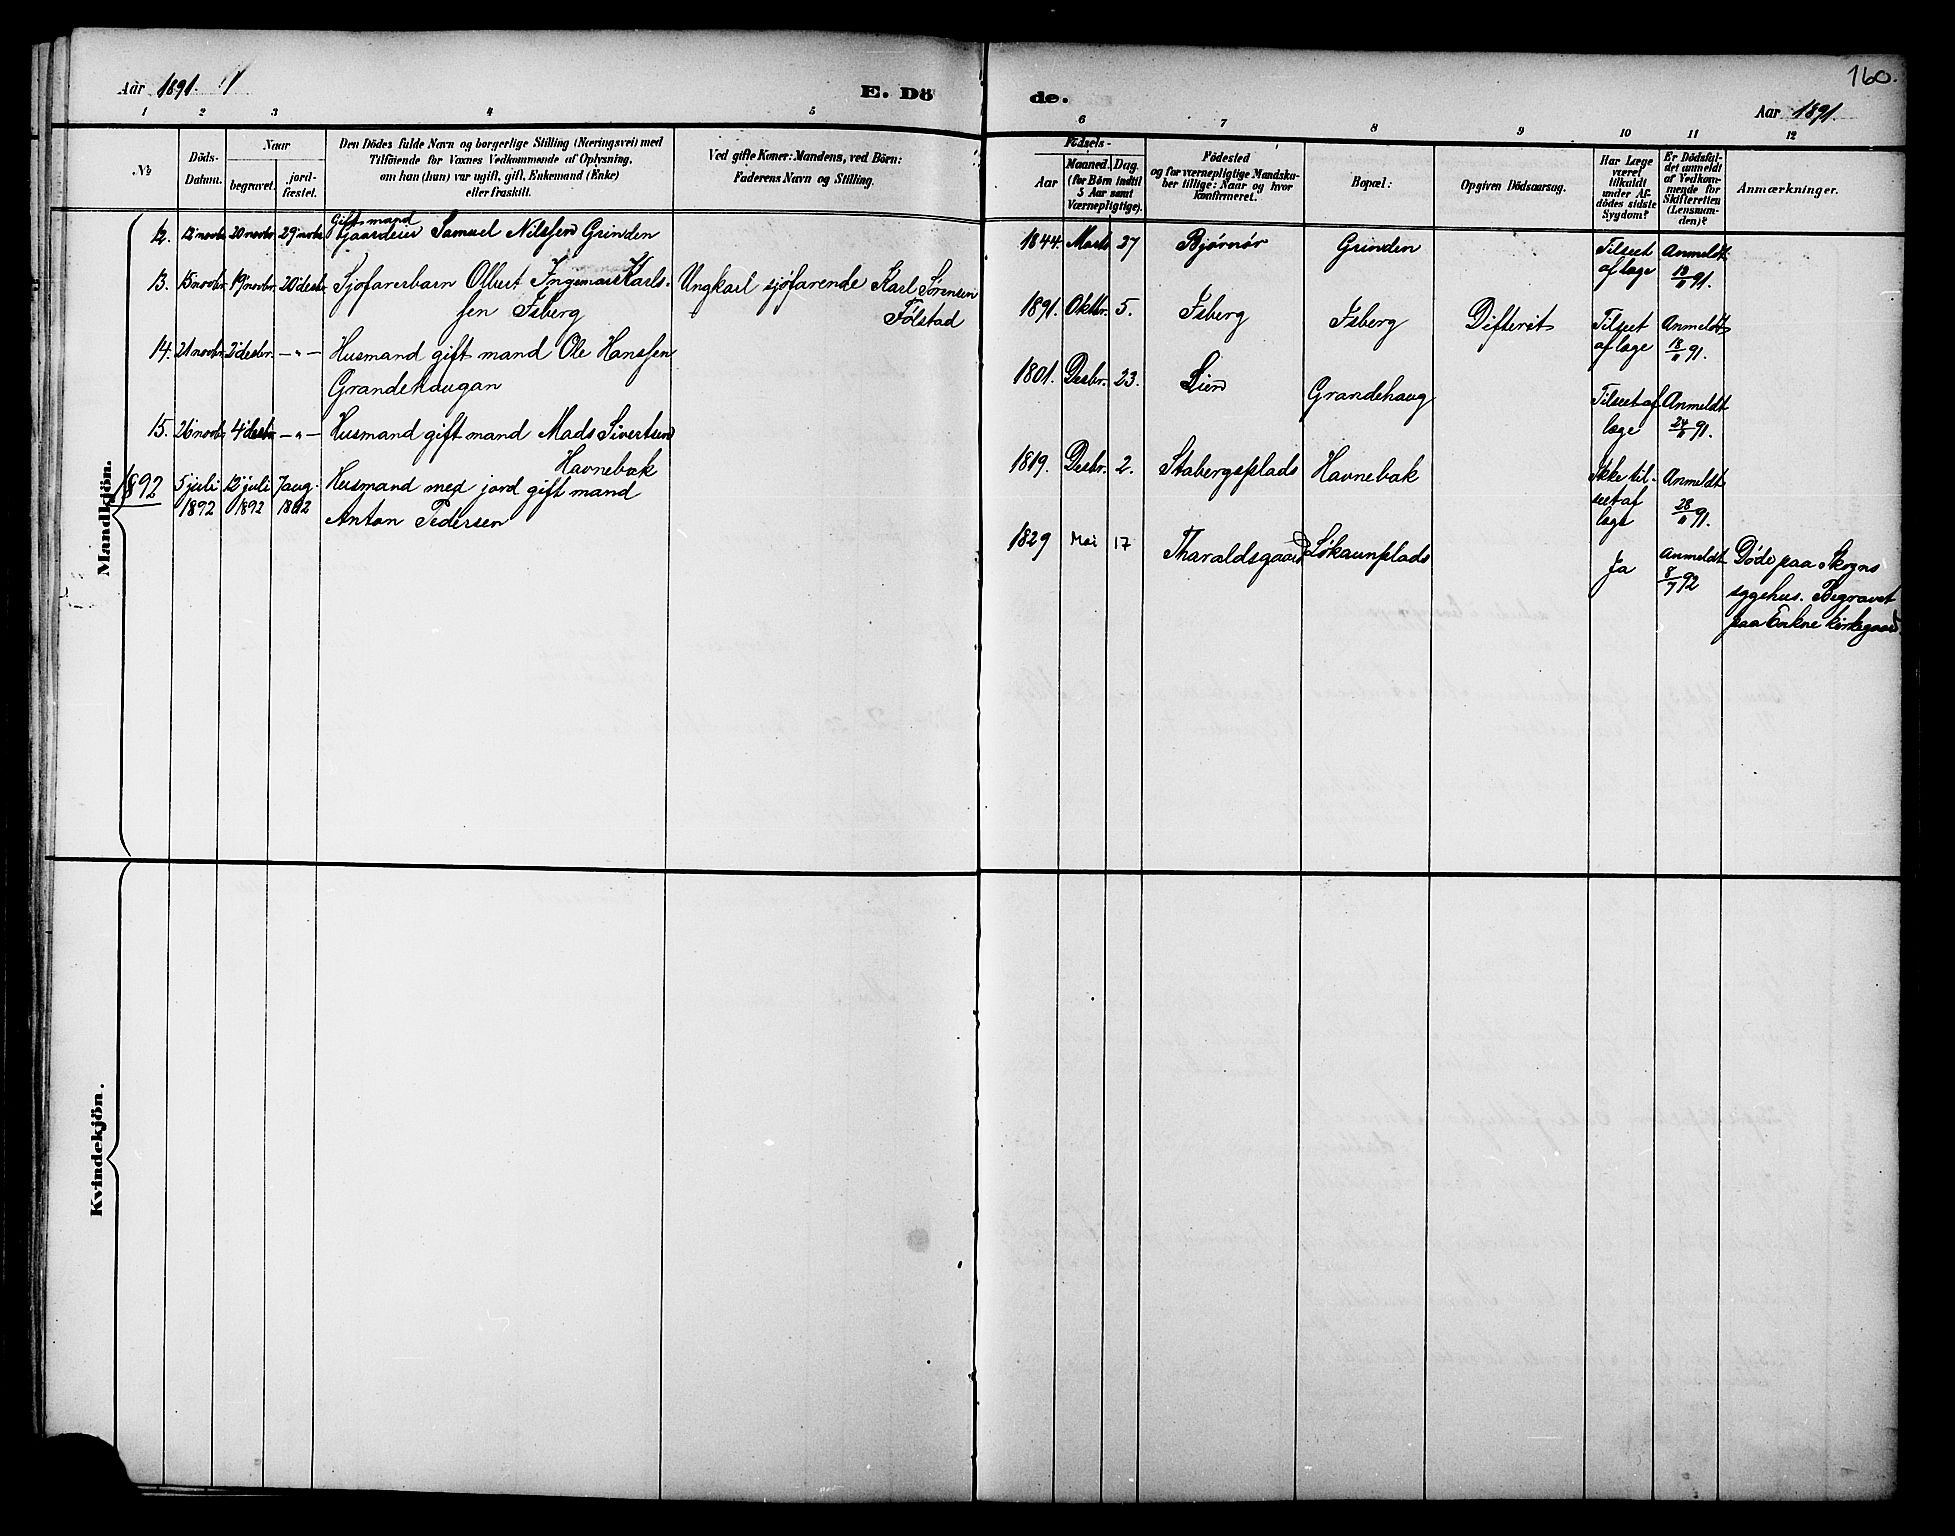 160.
Aar 1891.
E. Dö
de.
Aar 1891.
1 2 3 4 5 6 7 8 9 10 11 12
No
Döds-Datum.
Naar
begravet.
jord-fæstet.
Den Dödes fulde Navn og borgerlige Stilling (Næringsvei) med
Tilföiende for Voxnes Vedkommende af Oplysning,
om han (hun) var ugift, gift, Enkemand (Enke)
eller fraskilt.
Ved gifte Koner: Mandens, ved Börn:
Faderens Navn og Stilling.
Födsels-
Aar
Maaned. Dag.
(for Börn indtil
5 Aar samt
Værnepligtige).
Födested
og for værnepligtige Mandska-
ber tillige: Naar og hvor
konfirmeret.
Bopæl:
Opgiven Dödsaarsag.
Har Læge
været
tilkaldt
under Af-
dödes sidste
Sygdom?
Er Dödsfal-
det anmeldt
af Vedkom-
mende for
Skifteretten
(Lensman-
den)?
Anmærkninger.
Mandkjön.
Gift mand
12. 12 novbr 20 novbr 29 novbr Gaardeier Samuel Nilssen Grinden 1844. Marts 27 Bjørnør Grinden Tilseet af læge Anmeldt 18/11 91.
13. 15 novbr. 19 novbr. 20 desbr. Sjøfarerbarn Olbert Ingemar Karls-
sen Isberg
Ungkarl sjøfarende Karl Sørensen
Følstad
1891. Oktbr. 5. Isberg Isberg Difterit Tilseet af læge Anmeldt 18/11 91.
14. 21 novbr. 2 desbr. — " — Husmand gift mand Ole Hanssen
Grandehaugan
1801. Desbr. 23. Lien Grandehaug Tilseet af læge Anmeldt 24/11 91.
15. 26 novbr. 4 desbr — " — Husmand gift mand Mads Sivertsen
Havnebak
1819. Desbr. 2. Stabergsplads Havnebak Ikke til-
seet af
læge
Anmeldt 28/11 91.
1892 5 juli 1892 12 juli 1892 7 aug. 1892 Husmand med jord gift mand
Anton Pedersen
1829 Mai 17 Tharaldsgaard Løkaunplads Ja Anmeldt 8/7 92 Døde paa Skogns
sygehus. Begravet
paa Eukne kirkegaard
Kvindekjön.